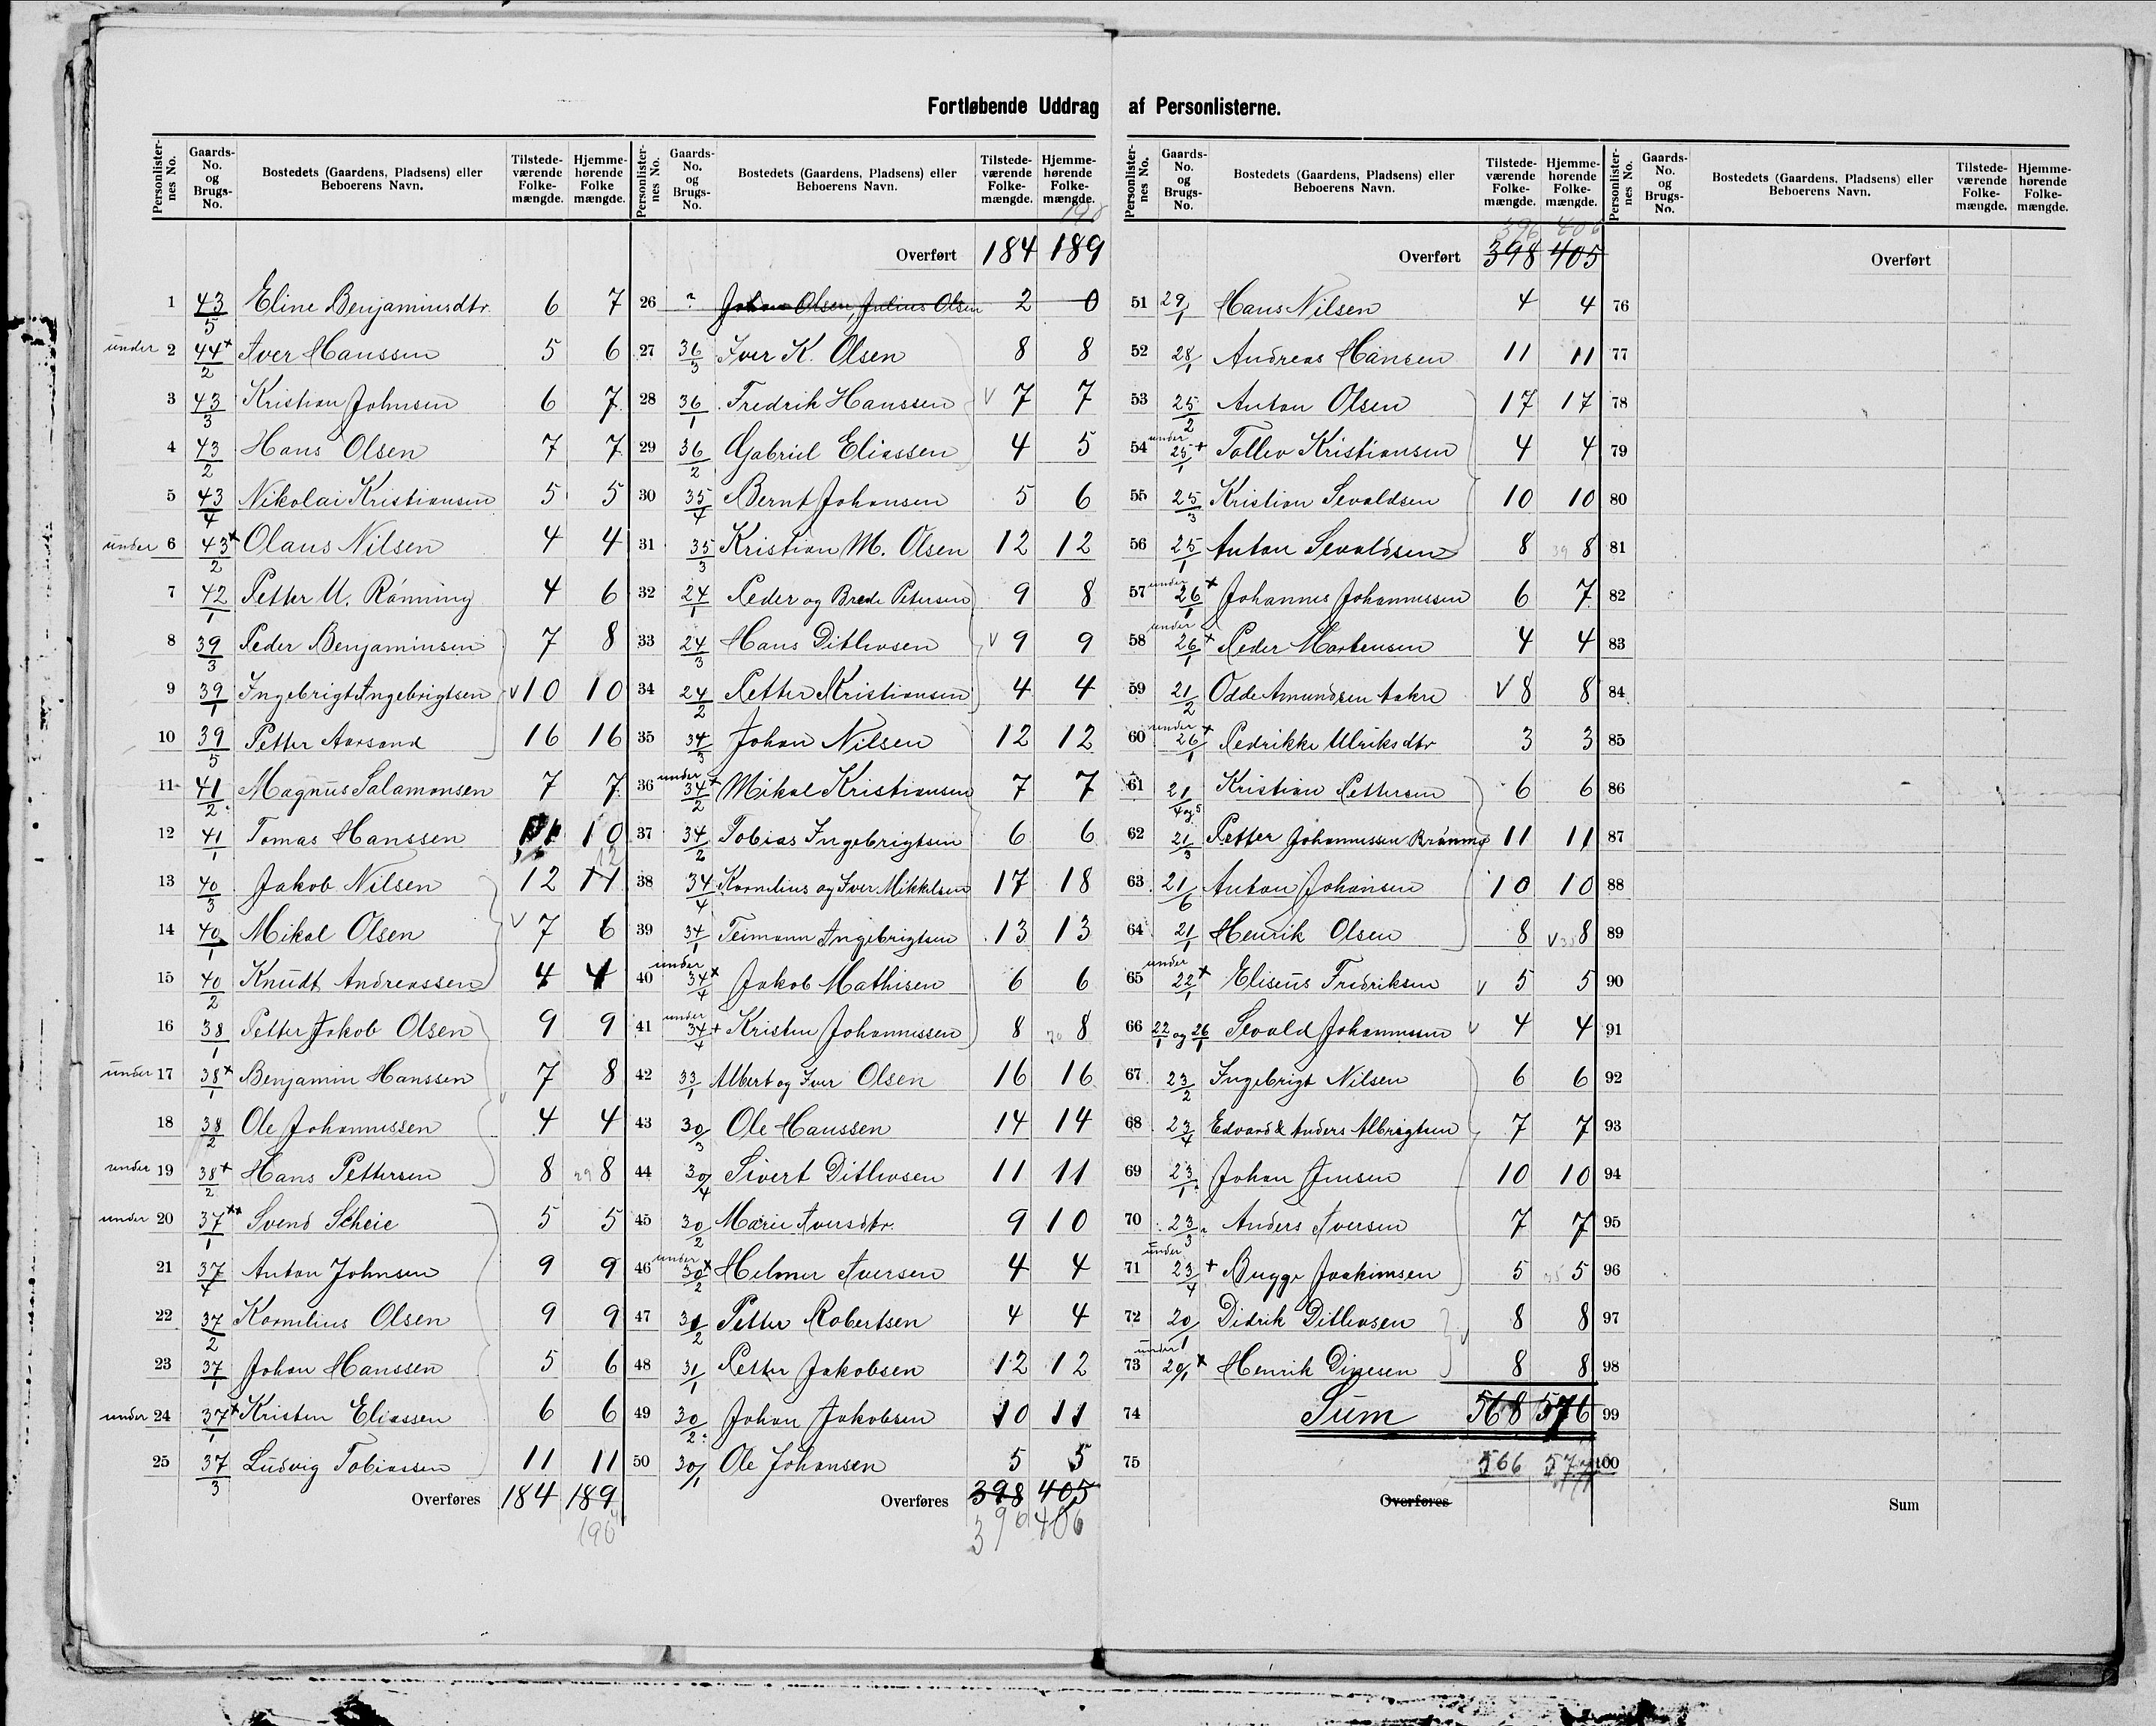 Fortløbende Uddrag af Personlisterne.
Personlisternes No. Gaards-No. og Brugs-No. Bostedets (Gaardens, Pladsens) eller Beboerens Navn. Tilstedeværende Folkemængde. Hjemmehørende Folkemængde.
1 43/5 Eline Benjaminsdtr. 6 7
under 2 44/2 + Iver Hanssen 5 6
3 43/3 Kristian Johnsen 6 7
4 43/2 Hans Olsen 7 7
5 43/4 Nikolai Kristiansen 5 5
under 6 43/2 + Olaus Nilsen 4 4
7 42/1 Petter U. Rönning 4 6
8 39/3 Peder Benjaminsen 7 8
9 39/1 Ingebrigt Ingebrigtsen v 10 10
10 39/5 Petter Aarsand 16 16
11 41/2 Magnus Salamonsen 7 7
12 41/1 Tomas Hanssen 10
13 40/3 Jakob Nilsen 12 11 12
14 40/1 Mikal Olsen v 7 6
15 40/2 Knudt Andreassen 4 4
16 38/1 Petter Jakob Olsen 9 9
under 17 38/1 + Benjamin Hanssen 7 8
18 38/2 Ole Johannessen 4 4
under 19 38/2 + Hans Pettersen 8 29 8
under 20 37/1 ++ Svend Scheie 5 5
21 37/4 Anton Johnsen 9 9
22 37/2 Kornelius Olsen 9 9
23 37/1 Johan Hanssen 5 6
under 24 37/1 + Kristen Eliassen 6 6
25 37/3 Ludvig Tobiassen 11 11
Overføres 184 189
190
190
Overført 184 189
26 ? Johan Olsen, Julius Olsen 2 0
27 36/3 Iver K. Olsen 8 8
28 36/1 Fredrik Hanssen v 7 7
29 36/2 Gabriel Eliassen 4 5
30 35/4 Bernt Johansen 5 6
31 35/3 Kristian M. Olsen 12 12
32 24/1 Peder og Brede Petersen 9 8
33 24/3 Hans Ditlevsen v 9 9
34 24/2 Petter Kristiansen 4 4
35 34/3 Johan Nilsen 12 12
36 under 34/2 + Mikal Kristiansen 7 7
37 34/2 Tobias Ingebrigtsen 6 6
38 34/4 Kornelius og Iver Mikkelsen 17 18
39 34/1 Teimann Ingebrigtsen 13 13
40 under 34/4 + Jakob Mathisen 6 6
41 under 34/4 + Kristen Johannessen 8 70 8
42 33/1 Albert og Iver Olsen 16 16
43 30/3 Ole Hanssen 14 14
44 30/4 Sivert Ditlevsen 11 11
45 30/2 Marie Iversdtr. 9 10
46 under 30/2 + Helmer Iversen 4 4
47 31/2 Petter Robertsen 4 4
48 31/1 Petter Jakobsen 12 12
49 30/2 Johan Jakobsen 10 11
50 30/1 Ole Johansen 5 5
Overføres 398 405
396 406
396 406
Overført 398 405
51 29/1 Hans Nilsen 4 4
52 28/1 Andreas Hansen 11 11
53 25/2 Anton Olsen 17 17
54 under 25/1 + Tollev Kristiansen 4 4
55 25/3 Kristian Sevaldsen 10 10
56 25/1 Anton Sevaldsen 8 39 8
57 under 26/1 + Johannes Johannessen 6 7
58 under 26/1 + Peder Mortensen 4 4
59 21/2 Odde Amundsen Aakre v 8 8
60 under 26/1 + Pedrikke Ulriksdtr 3 3
61 21/4 og 5 Kristian Pettersen 6 6
62 21/3 Petter Johannessen Brönmo 11 11
63 21/6 Anton Johansen 10 10
64 21/1 Henrik Olsen 8 v 8
65 under 22/1 + Eliseus Fredriksen v 5 5
66 22/1 og 26/1 Sevald Johannessen v 4 4
67 23/2 Ingebrigt Nilsen 6 6
68 23/4 Edvard & Anders Albrigtsen 7 7
69 23/1 Johan Jensen 10 10
70 23/3 Anders Iversen 7 7
71 under 23/4 + Bugge Joakimsen 5 35 5
72 20/1 Didrik Ditlevsen 8 8
73 under 20/1 + Henrik Dinesen 8 8
74 Sum 568 576
75 566 577
Overføres
Personlisternes No. Gaards-No. og Brugs-No. Bostedets (Gaardens, Pladsens) eller Beboerens Navn. Tilstedeværende Folkemængde. Hjemmehørende Folkemængde.
Overført
76
77
78
79
80
81
82
83
84
85
86
87
88
89
90
91
92
93
94
95
96
97
98
99
100
Sum